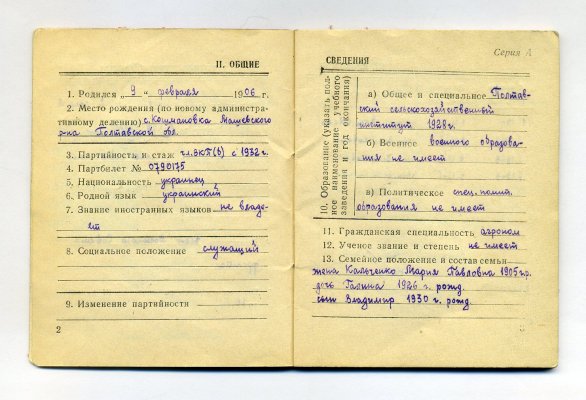 II. ОБЩИЕ
1. Родился „9“ февраля 1906 г.
2. Место рождения (по новому администра-
тивному делению) с. Кошмановка Машевского
р-на Полтавской обл.
3. Партийность и стаж чл. ВКП(б) с 1932 г.
4. Партбилет № 0790175
5. Национальность украинец
6. Родной язык украинский
7. Знание иностранных языков не владе-
ет
8. Социальное положение служащий
9. Изменение партийности
2
Серия А
СВЕДЕНИЯ
10. Образование (указать пол-
ное наименование учебного
заведения и год окончания)
а) Общее и специальное Полтав-
ский сельскохозяйственный
институт 1928 г.
б) Военное военного образова-
ния не имеет
в) Политическое спец. полит.
образования не имеет
11. Гражданская специальность агроном
12. Ученое звание и степень не имеет
13. Семейное положение и состав семьи
жена Кальченко Мария Павловна 1905 г.р.
дочь Галина 1926 г. рожд.
сын Владимир 1930 г. рожд.